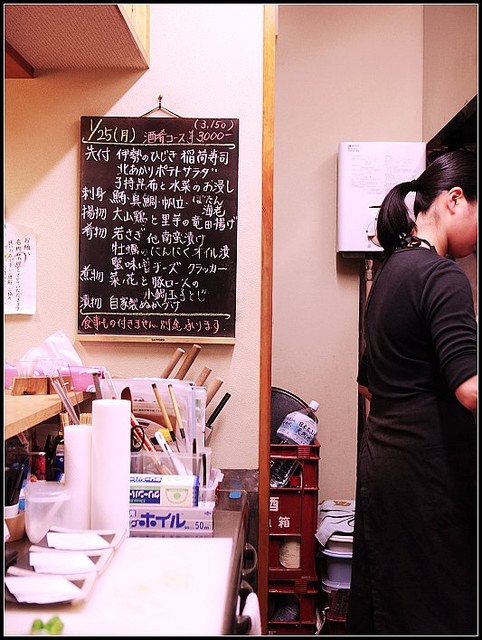 (3,150)
1/25(月) 酒肴コース ¥3000-
先付 伊勢のひじき稲荷寿司
北あかりポテトサラダ
子持昆布と水菜のお浸し
刺身 鰤・真鯛・帆立・ぼたん海老
揚物 大山鶏と里芋の竜田揚げ
肴物 若さぎ 南蛮漬け
牡蠣のにんにくオイル漬
蟹味噌チーズ クラッカー
煮物 菜の花と豚ロースの
小鍋玉子とじ
漬物 自家製ぬかづけ
食事もの付きません 別途承ります
ホイル 50m
酒
箱